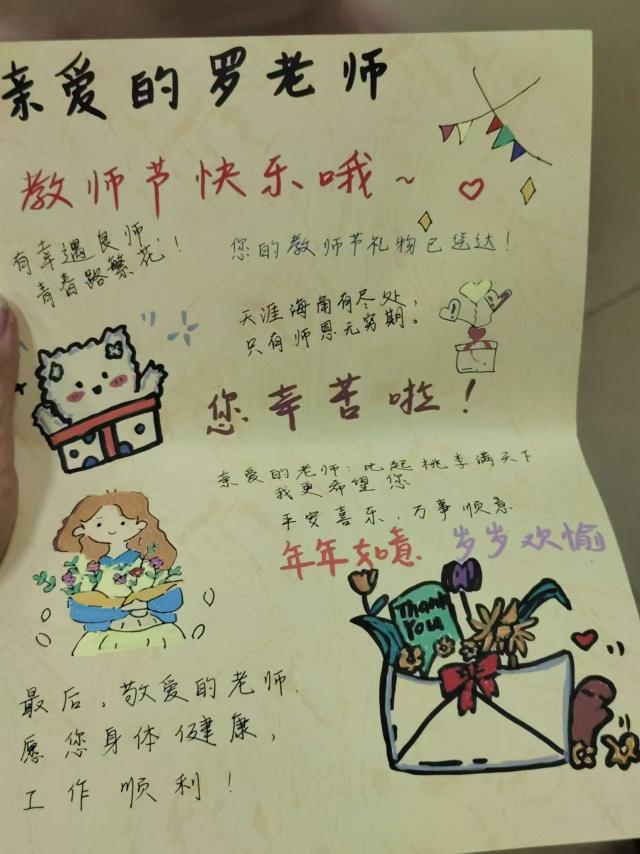 亲爱的罗老师
教师节快乐哦~
有幸遇良师
青春路繁花!
您的教师节礼物已送达!
天涯海角有尽处,
只有师恩无穷期。
您辛苦啦!
亲爱的老师:比起桃李满天下
我更希望您
平安喜乐,万事顺意
年年如意 岁岁欢愉
Thank
You
最后,敬爱的老师.
愿您身体健康,
工作顺利!